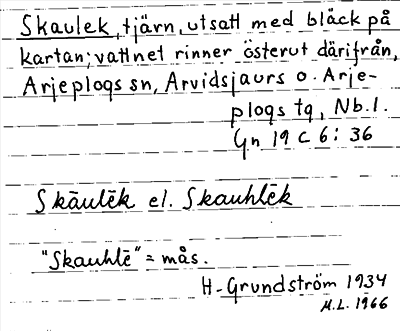 Skaulek, tjärn, utsatt med bläck på
kartan; vattnet rinner österut därifrån,
Arjeplogs sn, Arvidsjaurs o. Arje-
plogs tg, Nb.l.
Gn 19 C 6: 36
Skäulēk el. Skauhlēk
"Skauhlē" = mås.
H. Grundström 1934
M.L. 1966